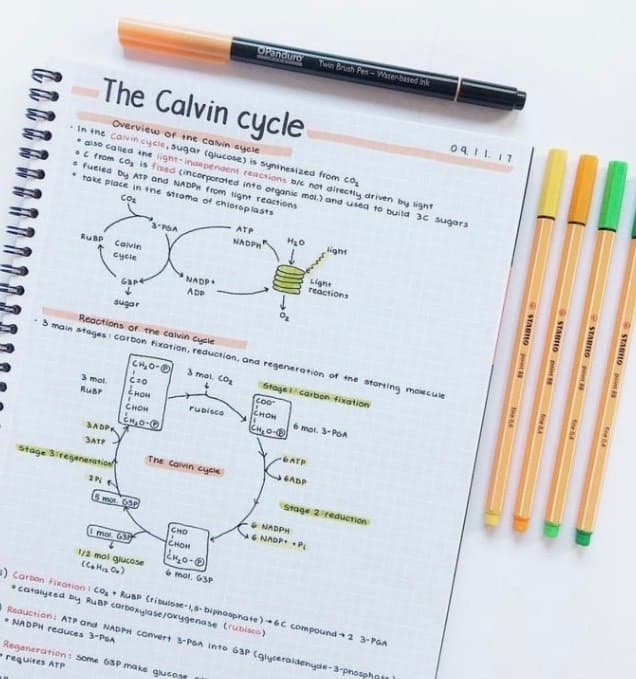 OPanduro Twin Brush Pen - Water-based ink
The Calvin cycle
09.11.17
Overview of the calvin cycle
- In the Calvin cycle, sugar (glucose) is synthesized from CO₂
• also called the light-independent reactions b/c not directly driven by light
• C from CO₂ is fixed (incorporated into organic mol.) and used to build 3C sugars
• fueled by ATP and NADPH from light reactions
• take place in the stroma of chloroplasts
CO₂
3-PGA
RuBP
Calvin
cycle
G3P
sugar
ATP
NADPH
NADP+
ADP
H₂O
light
Light
reactions
O₂
Reactions of the calvin cycle
- 3 main stages: carbon fixation, reduction, and regeneration of the starting molecule
3 mol.
RuBP
CH₂O-Ⓟ
C=O
CHOH
CHOH
CH₂O-Ⓟ
3 mol. CO₂
rubisco
Stage 1: carbon fixation
COO⁻
CHOH
CH₂O-Ⓟ
6 mol. 3-PGA
6ATP
6ADP
Stage 2: reduction
6 NADPH
6 NADP+ + Pi
CHO
CHOH
CH₂O-Ⓟ
6 mol. G3P
1 mol. G3P
1/2 mol glucose
(C₆H₁₂O₆)
5 mol. G3P
2Pi
Stage 3: regeneration
3ATP
3ADP
The Calvin cycle
1) Carbon fixation: CO₂ + RuBP (ribulose-1,5-biphosphate) → 6C compound → 2 3-PGA
• catalyzed by RuBP carboxylase/oxygenase (rubisco)
Reduction: ATP and NADPH convert 3-PGA into G3P (glyceraldehyde-3-phosphate)
• NADPH reduces 3-PGA
Regeneration: some G3P make glucose
• requires ATP
STABILO point 88 fine 0,4
STABILO point 88 fine 0,4
STABILO point 88 fine 0,4
STABILO point 88 fine 0,4